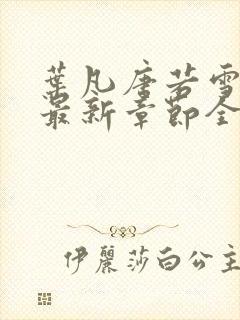 葉凡唐若雪
最新章節全
伊麗莎白公主